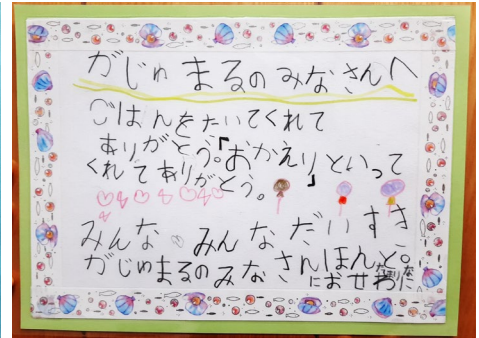 がじゅまるのみなさんへ
ごはんをたいてくれて
ありがとう。「おかえり」といって
くれてありがとう。
みんな みんなだいすき
がじゅまるのみなさんほんと。
におせわ